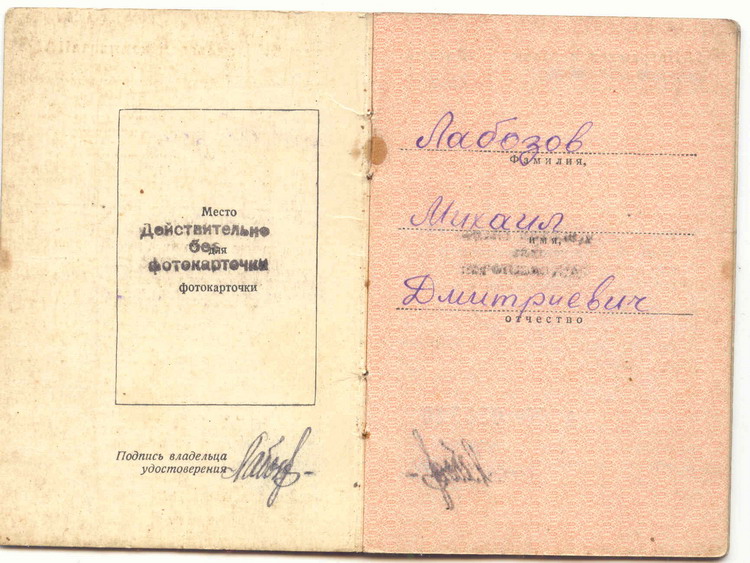 Место
Действительно
без
для
фотокарточки
фотокарточки
Подпись владельца
удостоверения
Лабозов
Фамилия,
Михаил
имя,
Дмитриевич
отчество